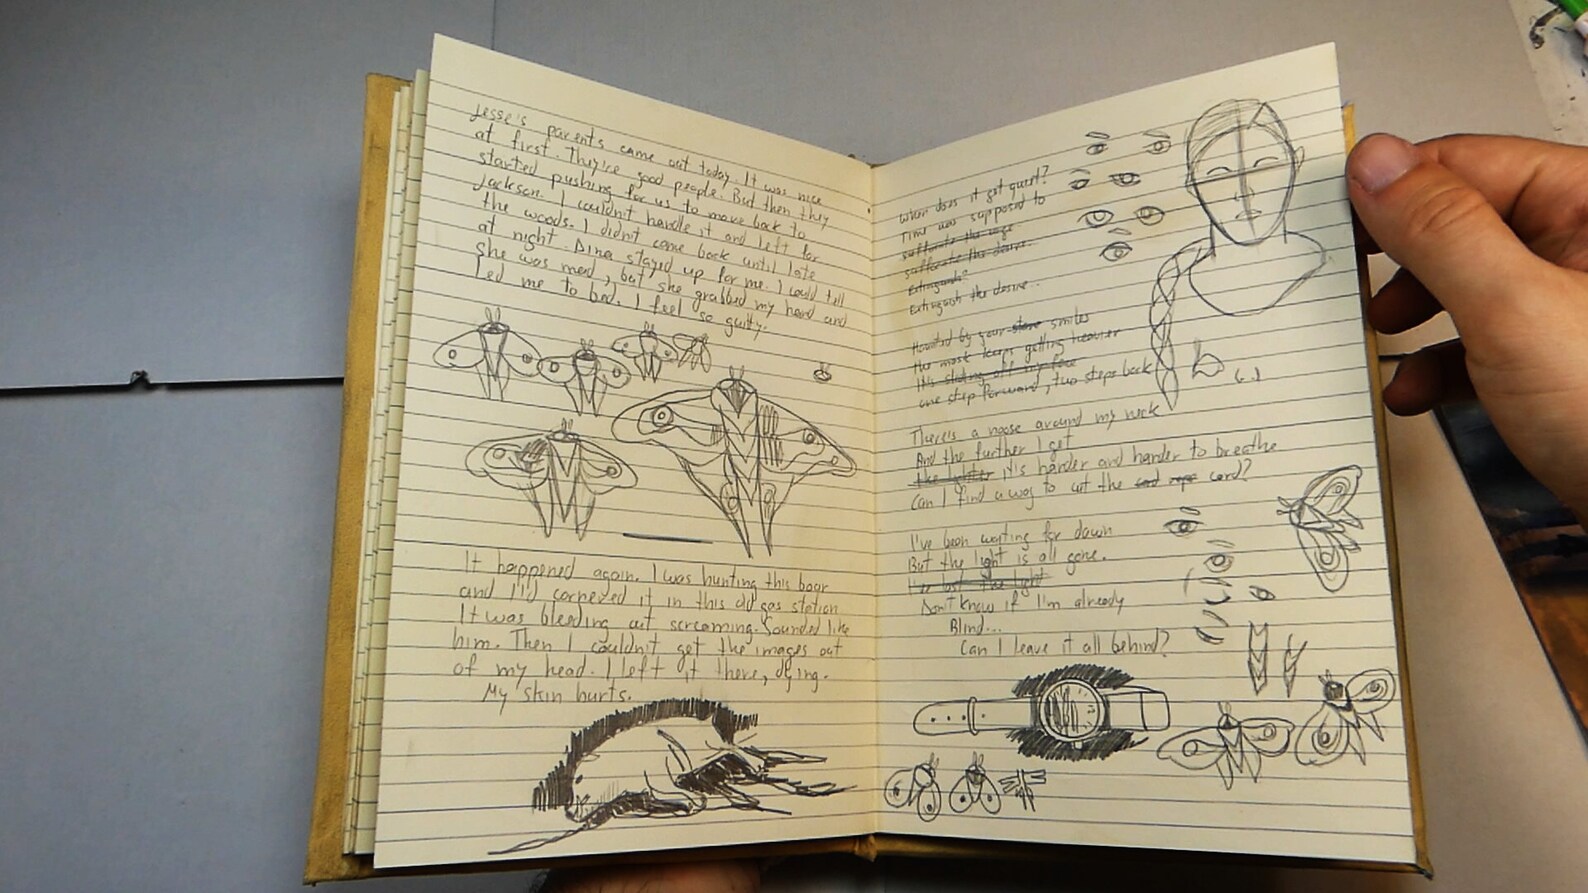 Jesse's parents came out today. It was nice
at first. They're good people. But then they
started pushing for us to move back to
Jackson. I couldn't handle it and left for
the woods. I didn't come back until late
at night. Dina stayed up for me. I could tell
she was mad, but she grabbed my hand and
led me to bed. I feel so guilty.
It happened again. I was hunting this boar
and I'd cornered it in this old gas station
It was bleeding out screaming. Sounded like
him. Then I couldn't get the images out
of my head. I left it there, dying.
My skin hurts.
When does it get quiet?
Time was supposed to
suffocate the rage
suffocate the desire.
Extinguish
Extinguish the desire..
Haunted by your stare smiles
The mask keeps getting heavier
It's sliding off my face
one step forward, two steps back
There's a noose around my neck
And the further I get
the tighter it's harder and harder to breathe
Can I find a way to cut the rope cord?
I've been waiting for dawn
But the light is all gone.
I've lost the light
Don't know if I'm already
Blind...
Can I leave it all behind?